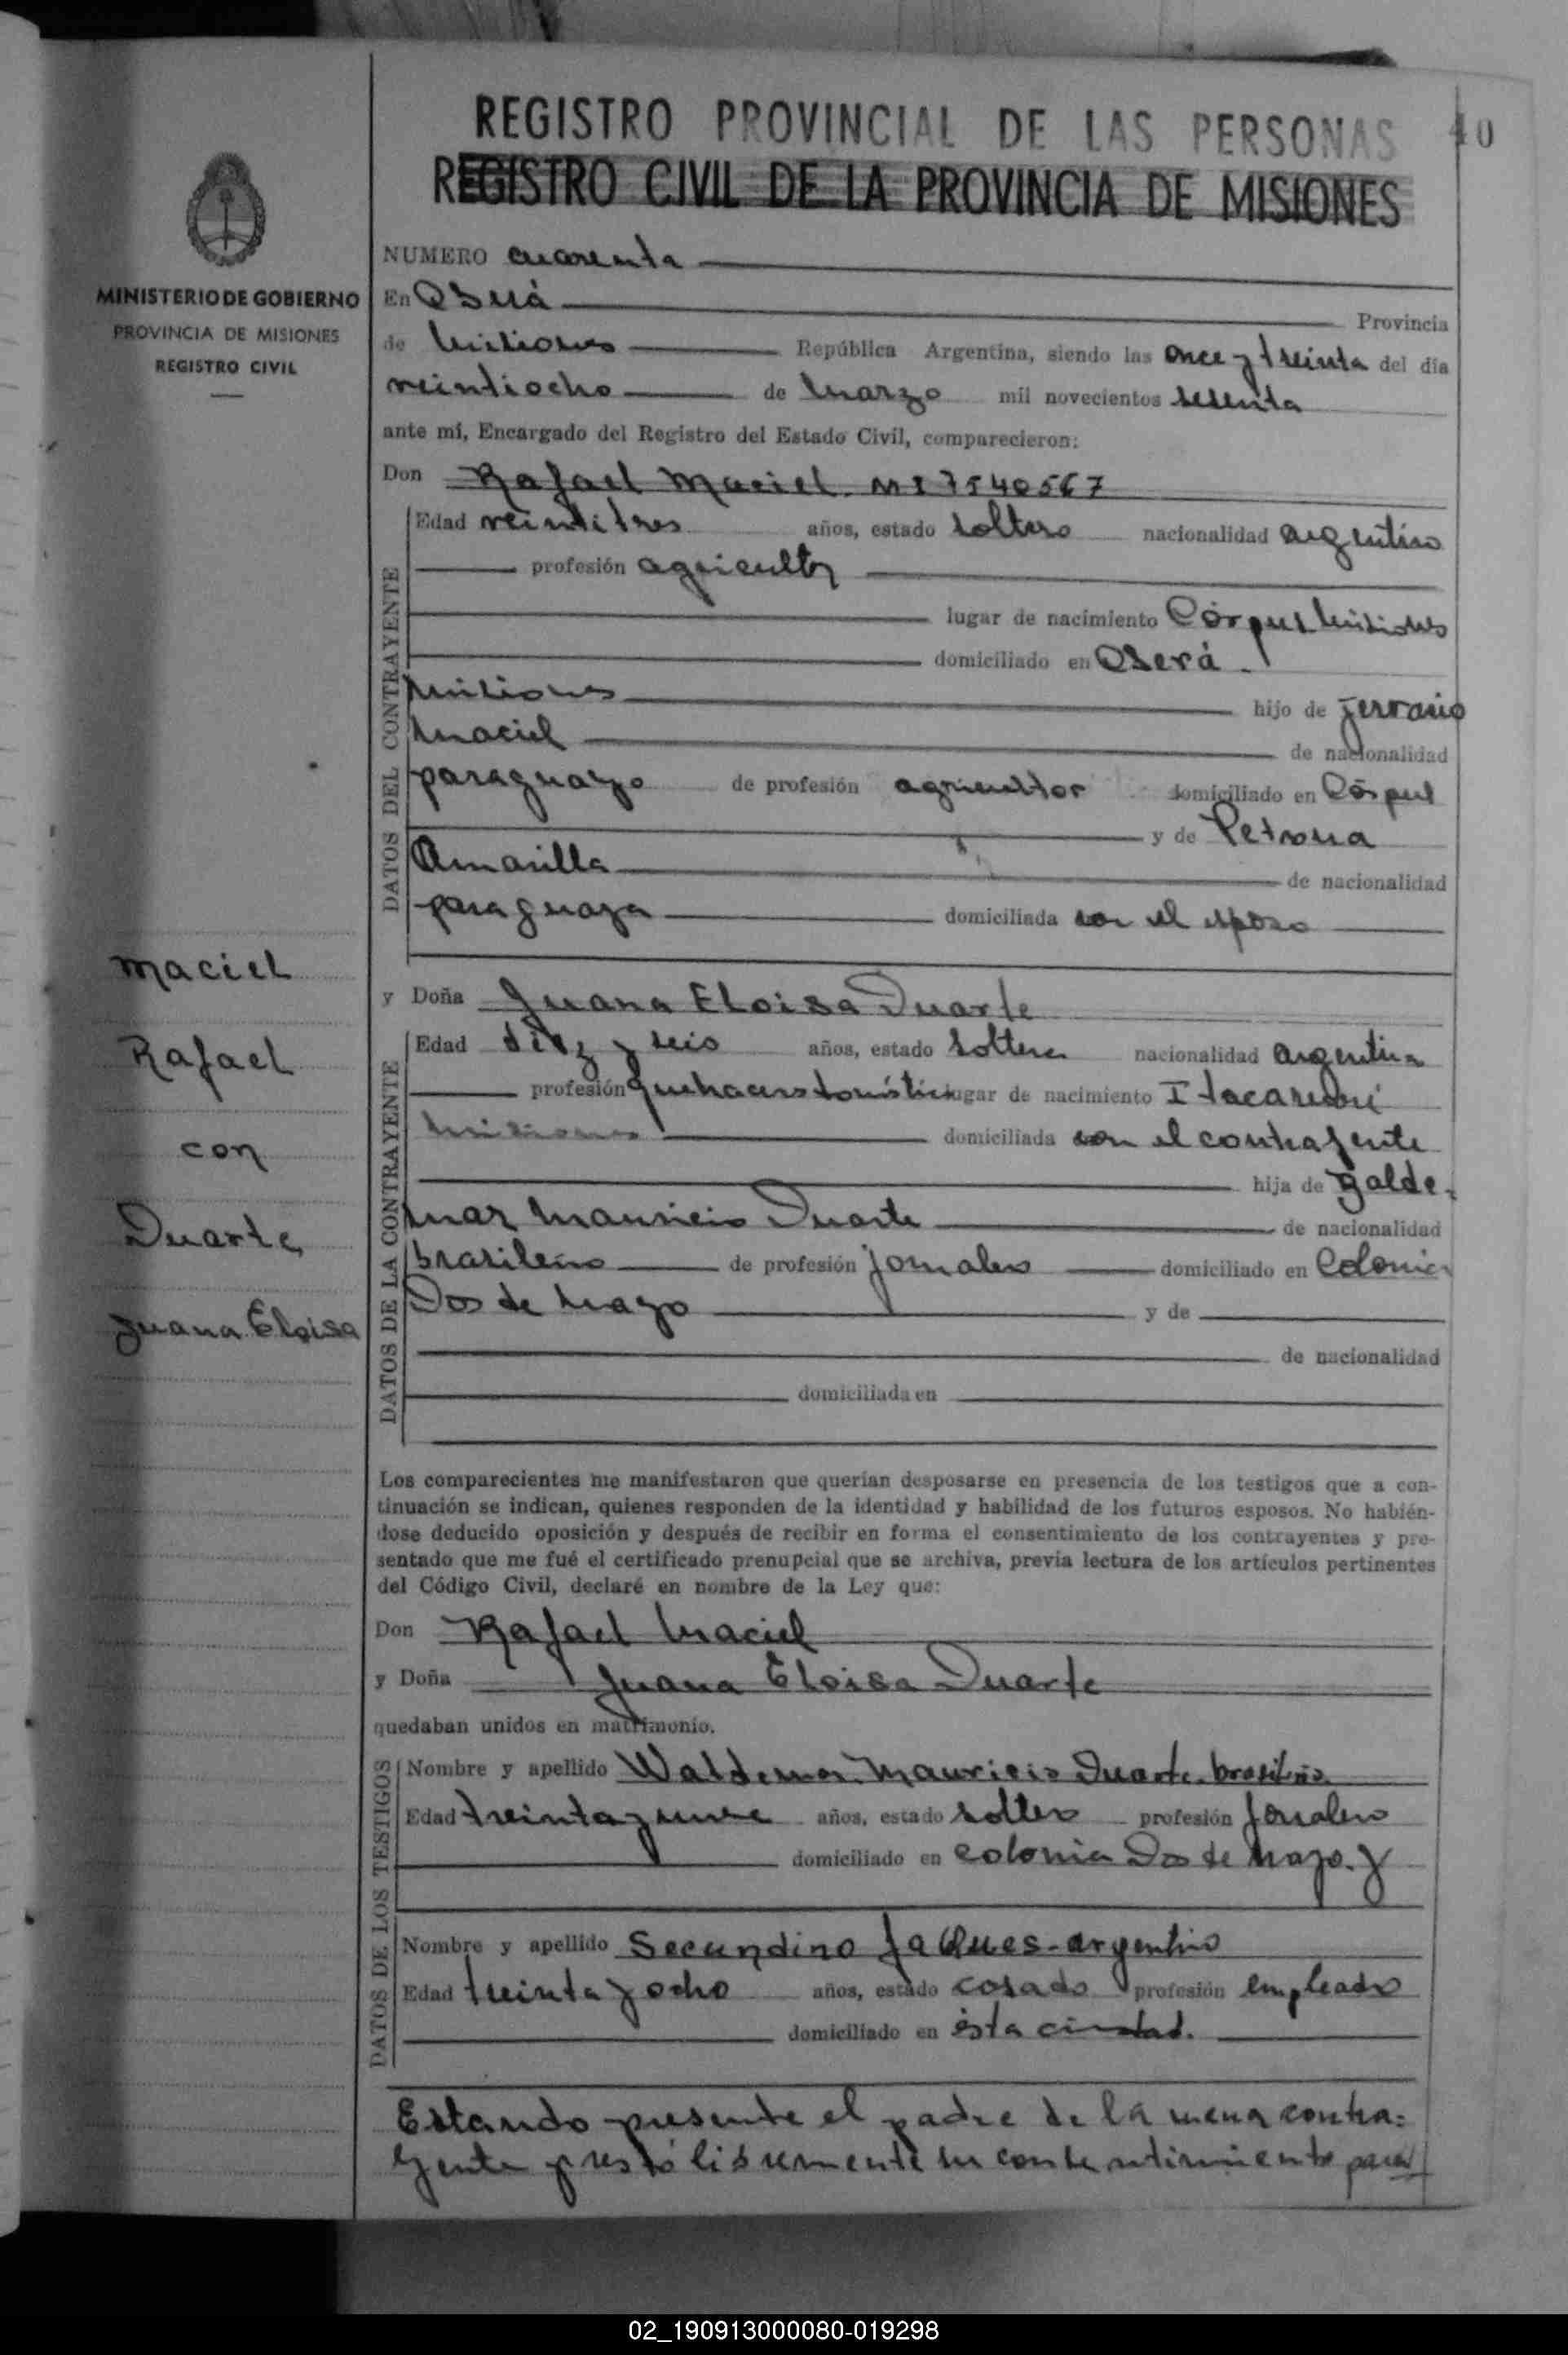 REGISTRO PROVINCIAL DE LAS PERSONAS 40
REGISTRO CIVIL DE LA PROVINCIA DE MISIONES
MINISTERIO DE GOBIERNO
PROVINCIA DE MISIONES
REGISTRO CIVIL
NUMERO cuarenta
En Oberá Provincia
de Misiones República Argentina, siendo las once y treinta del día
veintiocho de marzo mil novecientos
ante mí, Encargado del Registro del Estado Civil, comparecieron:
Don Rafael Maciel. MI 7540567
DATOS DEL CONTRAYENTE
Edad veintitres años, estado soltero nacionalidad argentino
profesión agricultor
lugar de nacimiento Córpus Misiones
domiciliado en Oberá.
Misiones hijo de Jervacio
Maciel de nacionalidad
paraguayo de profesión agricultor domiciliado en Córpus
y de Petrona
Amarilla de nacionalidad
paraguaya domiciliada con el esposo
Maciel
Rafael
con
Duarte
Juana Eloisa
y Doña Juana Eloisa Duarte
DATOS DE LA CONTRAYENTE
Edad diez y seis años, estado soltera nacionalidad argentina
profesión lugar de nacimiento Itacaruaré
Misiones domiciliada con el contrayente
hija de Balde-
mar Mauricio Duarte de nacionalidad
brasileño de profesión jornalero domiciliado en Colonia
Dos de Mayo y de
de nacionalidad
domiciliada en
Los comparecientes me manifestaron que querían desposarse en presencia de los testigos que a con-
tinuación se indican, quienes responden de la identidad y habilidad de los futuros esposos. No habién-
dose deducido oposición y después de recibir en forma el consentimiento de los contrayentes y pre-
sentado que me fué el certificado prenupcial que se archiva, previa lectura de los artículos pertinentes
del Código Civil, declaré en nombre de la Ley que:
Don Rafael Maciel
y Doña Juana Eloisa Duarte
quedaban unidos en matrimonio.
DATOS DE LOS TESTIGOS
Nombre y apellido Waldemar Mauricio Duarte. brasileño.
Edad treinta y nueve años, estado soltero profesión Jornalero
domiciliado en colonia Dos de Mayo. y
Nombre y apellido Secundino Jaques-argentino
Edad treinta y ocho años, estado casado profesión empleado
domiciliado en ésta ciudad.
Estando presente el padre de la menor contra=
yente prestó libremente su consentimiento para
02_190913000080-019298